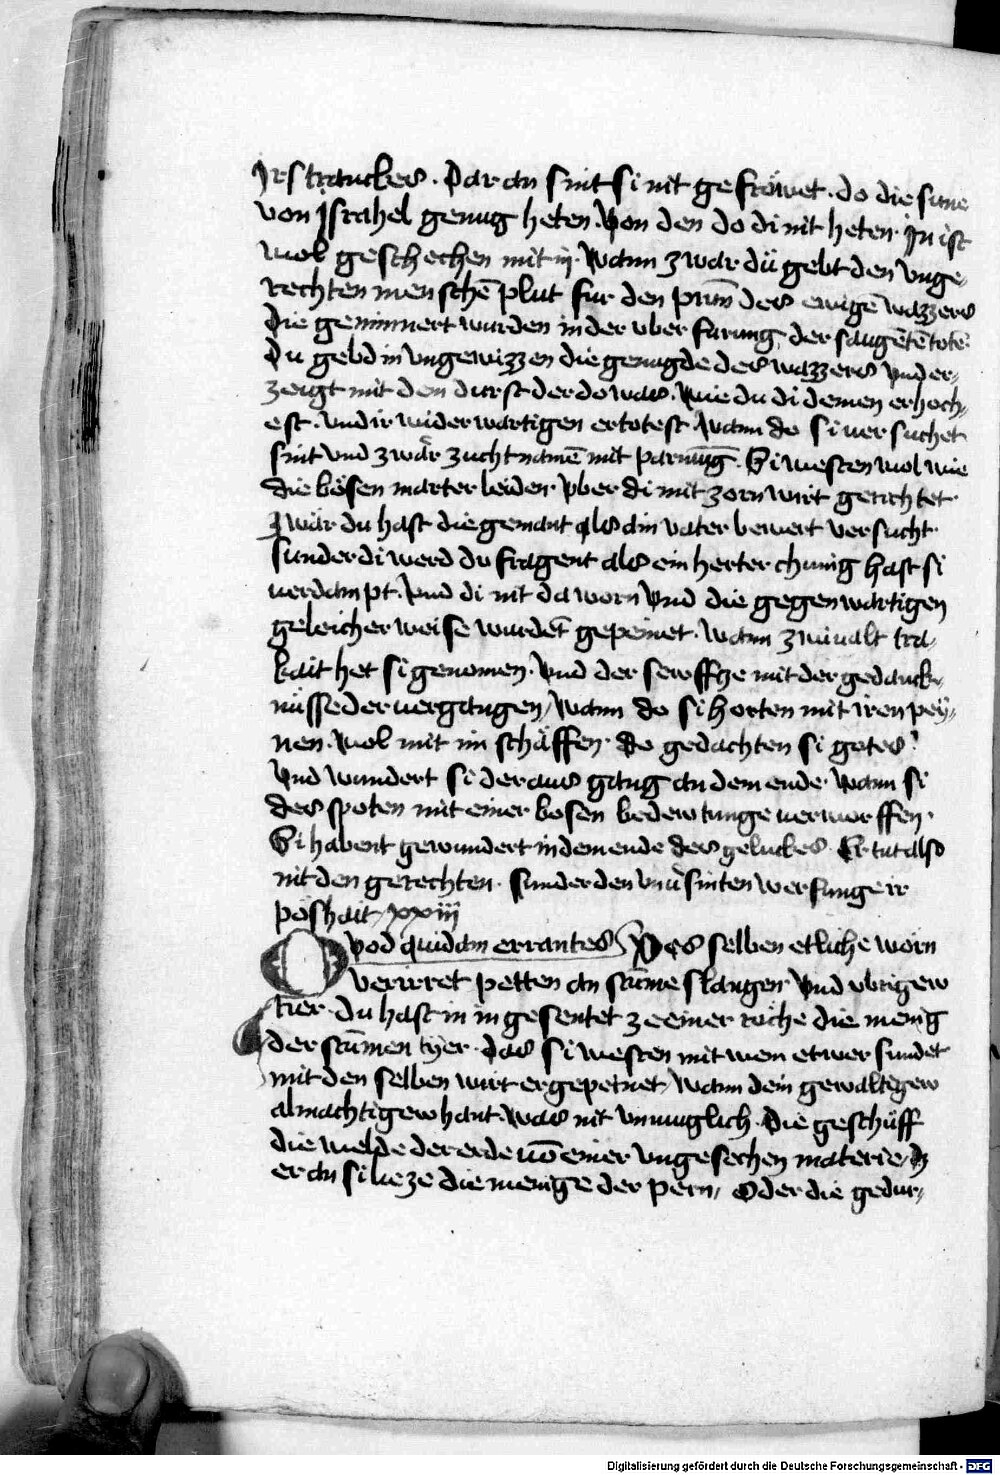 Irs tranckes. Dar an sint si nit gefröwet. do die sune
von Israhel genug heten. Von den do di nit heten. In ist
wol geschechen mit in. Wann zwar dü gebt den vnge-
rechten menschē plut fur den prūn des ewigē wazzers
Die geminnert wurden in der vber furung der saugētē totē.
Du gebd in vngewizzen die genugde des wazzers vnd er-
zeugt mit dem durst der do was. Wie du di deinen erhoch-
est. vnd ir widerwartigen ertotest Wann do si versuchet
sint vnd zwar zucht namē mit parmūg. Si westen wol wie
die bösen marter leiden. Vber di mit zorn wirt gerichtet.
Zwar du hast die gemant als ain vater bewert versucht.
sunder di werd du fragent als ein herter chunig hast si
verdampt. Vnd di nit da worn vnd die gegenwartigen
geleicher weise wurdēt gepeinet. Wann zwiualt tra-
kait het si genomen. Vnd der sewffze mit der gedanck-
nüsse der uergangen, Wann do si horten mit iren pey-
nen. Wol mit im schaffen. do gedachten si gotes.
Vnd wundert si der aus gang an dem ende. Wann si
des spoten mit einer bosen bedewtunge verworffen.
Si habent gewundert in dem ende des geluckes. Er tut also
nit den gerechten. sunder den vnusinten werfunge ir
poshait, xxiii
Quod quidam errantes Des selben etliche worn
verirret petten an stūme slangen Vnd vbrigew
tier. du hast in in gesentet ze einer rache die menig
der stūmen tyer. das si westen mit wem etwer sundet
mit den selben wirt er gepeinet, Wann dein gewaltigew
almachtigew hant. was nit vnmuglich. die geschüff
die welde der erde vō einer vngesechen materie, dz
er an si lieze die menige der pern, Oder die gedur-
Digitalisierung gefördert durch die Deutsche Forschungsgemeinschaft - DFG